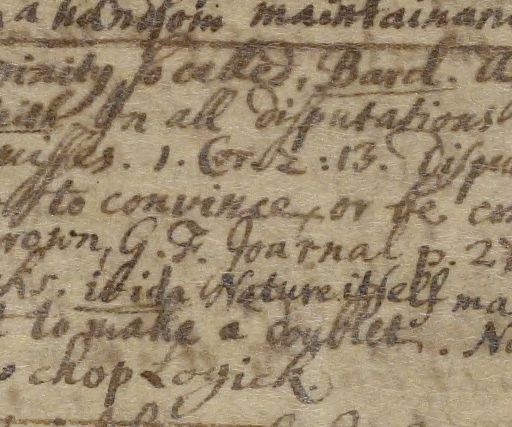 a handsom maintainan
rinity so called, Barcl.
In all disputations
1. Cor: 2 :13. Dispu
to convince, or be con
rown, G. F. Journal p. 27
ks. ibida Nature itself ma
to make a doublet. No
chop Logick.